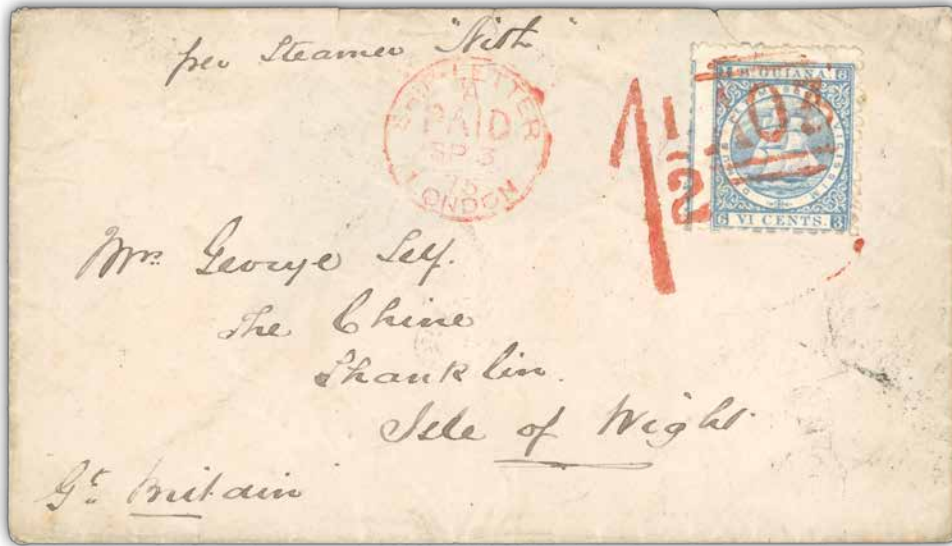 per Steamer "Nith"
SHIP-LETTER
A
PAID
SP 3
75
LONDON
1 1/2
B. GUIANA.
DAMUS PETIMUSQUE VICISSIM
VI CENTS.
Mrs. George Self.
The Chine
Shanklin.
Isle of Wight
Gt. Britain